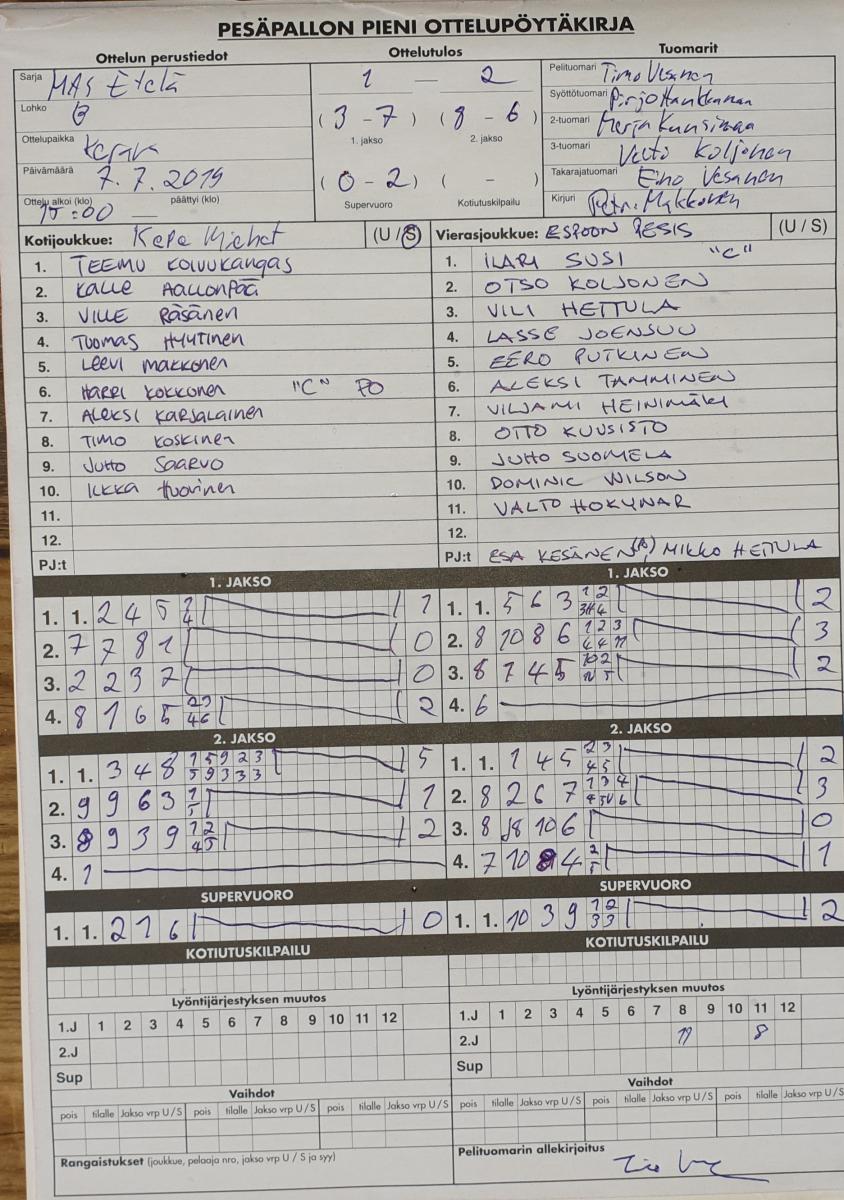 PESÄPALLON PIENI OTTELUPÖYTÄKIRJA
Ottelun perustiedot
Sarja MAS Etelä
Lohko B
Ottelupaikka Kerava
Päivämäärä 7.7.2019
Ottelu alkoi (klo) 15:00 — päättyi (klo)
Ottelutulos
1 — 2
(3 - 7) (8 - 6)
1. jakso 2. jakso
(0 - 2) ( - )
Supervuoro Kotiutuskilpailu
Tuomarit
Pelituomari Timo Vesanen
Syöttötuomari Pirjo Hankkanen
2-tuomari Merja Kuusimaa
3-tuomari Veito Koljonen
Takarajatuomari Eino Vesanen
Kirjuri Petri Makkonen
Kotijoukkue: KePa Miehet (U / S)
1. TEEMU KOIVUKANGAS
2. KALLE AALLONPÄÄ
3. VILLE RÄSÄNEN
4. TUOMAS HYYTINEN
5. LEEVI MAKKONEN
6. HARRI KOKKONEN "C" PO
7. ALEKSI KARJALAINEN
8. TIMO KOSKINEN
9. JUHO SAARVO
10. ILKKA HUOVINEN
11.
12.
PJ:t
Vierasjoukkue: ESPOON PESIS (U / S)
1. ILARI SUSI "C"
2. OTSO KOLJONEN
3. VILI HETTULA
4. LASSE JOENSUU
5. EERO PUTKINEN
6. ALEKSI TAMMINEN
7. VILJAMI HEINIMÄKI
8. OTTO KUUSISTO
9. JUHO SUOMELA
10. DOMINIC WILSON
11. VALTO HOKYNAR
12.
PJ:t ESA KESÄNEN (A), MIKKO HETTULA
1. JAKSO
1. 1. 2 4 5 1
2. 7 7 8 1 0
3. 2 2 3 7 0
4. 8 1 6 5 23 46 2
2. JAKSO
1. 1. 3 4 8 15923 59333 5
2. 9 9 6 3 1 5 1
3. 8 9 3 9 12 45 2
4. 1
SUPERVUORO
1. 1. 2 1 6 0
KOTIUTUSKILPAILU
Lyöntijärjestyksen muutos
1.J 1 2 3 4 5 6 7 8 9 10 11 12
2.J
Sup
Vaihdot
pois tilalle Jakso vrp U / S pois tilalle Jakso vrp U / S pois tilalle Jakso vrp U / S
Rangaistukset (joukkue, pelaaja nro, jakso vrp U / S ja syy)
1. JAKSO
1. 1. 5 6 3 2
2. 8 10 8 6 123 3
3. 8 7 4 5 2
4. 6
2. JAKSO
1. 1. 1 4 5 23 45 2
2. 8 2 6 7 134 3
3. 8 10 6 0
4. 7 10 8 4 2 5 1
SUPERVUORO
1. 1. 10 3 9 12 33 2
KOTIUTUSKILPAILU
Lyöntijärjestyksen muutos
1.J 1 2 3 4 5 6 7 8 9 10 11 12
2.J 11 8
Sup
Vaihdot
pois tilalle Jakso vrp U / S pois tilalle Jakso vrp U / S pois tilalle Jakso vrp U / S
Pelituomarin allekirjoitus